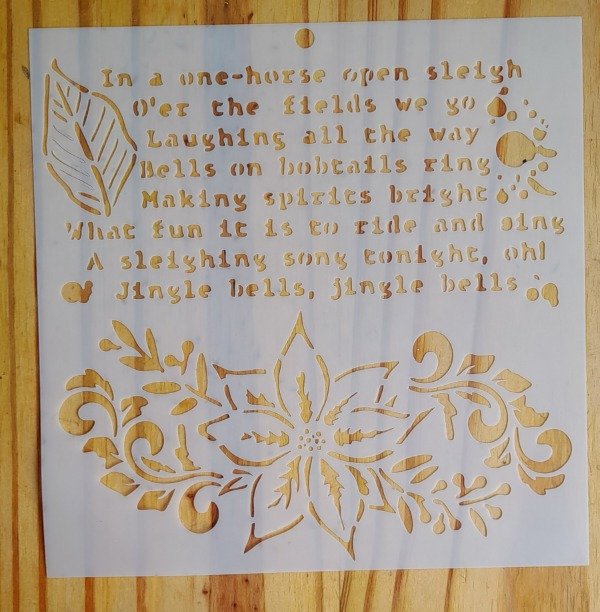 In a one-horse open sleigh
O'er the fields we go
Laughing all the way
Bells on bobtails ring
Making spirits bright
What fun it is to ride and sing
A sleighing song tonight, oh!
Jingle bells, jingle bells